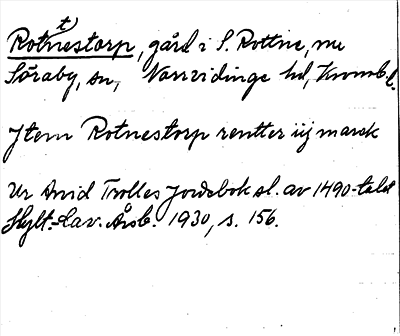 Rottnestorp, gård i S. Rottne, nu
Söraby, sn, Norrvidinge hd, Kronob. l.
Jtem Rotnestorp rentter iij marck
Ur Arvid Trolles Jordebok sl. av 1490-talet
Hylt.-Cav. Årsb. 1930, s. 156.